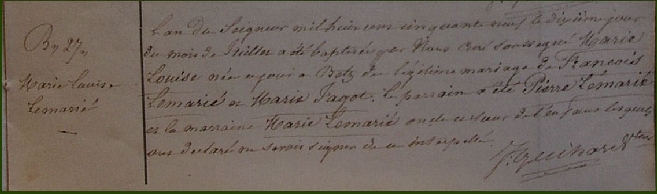 B. 27
Marie Louise
Lemarié
L'an du Seigneur mil huit cent cinquante neuf le dixième jour
du mois de Juillet a été baptisée par Nous soussigné Marie
Louise née ce jour à Betz du légitime mariage de François
Lemarié et Marie Jagot. Le parrain a été Pierre Lemarié
et la marraine Marie Lemarié oncle et sœur de l'enfant lesquels
ont déclaré ne savoir signer de ce interpelé
J. Guichard